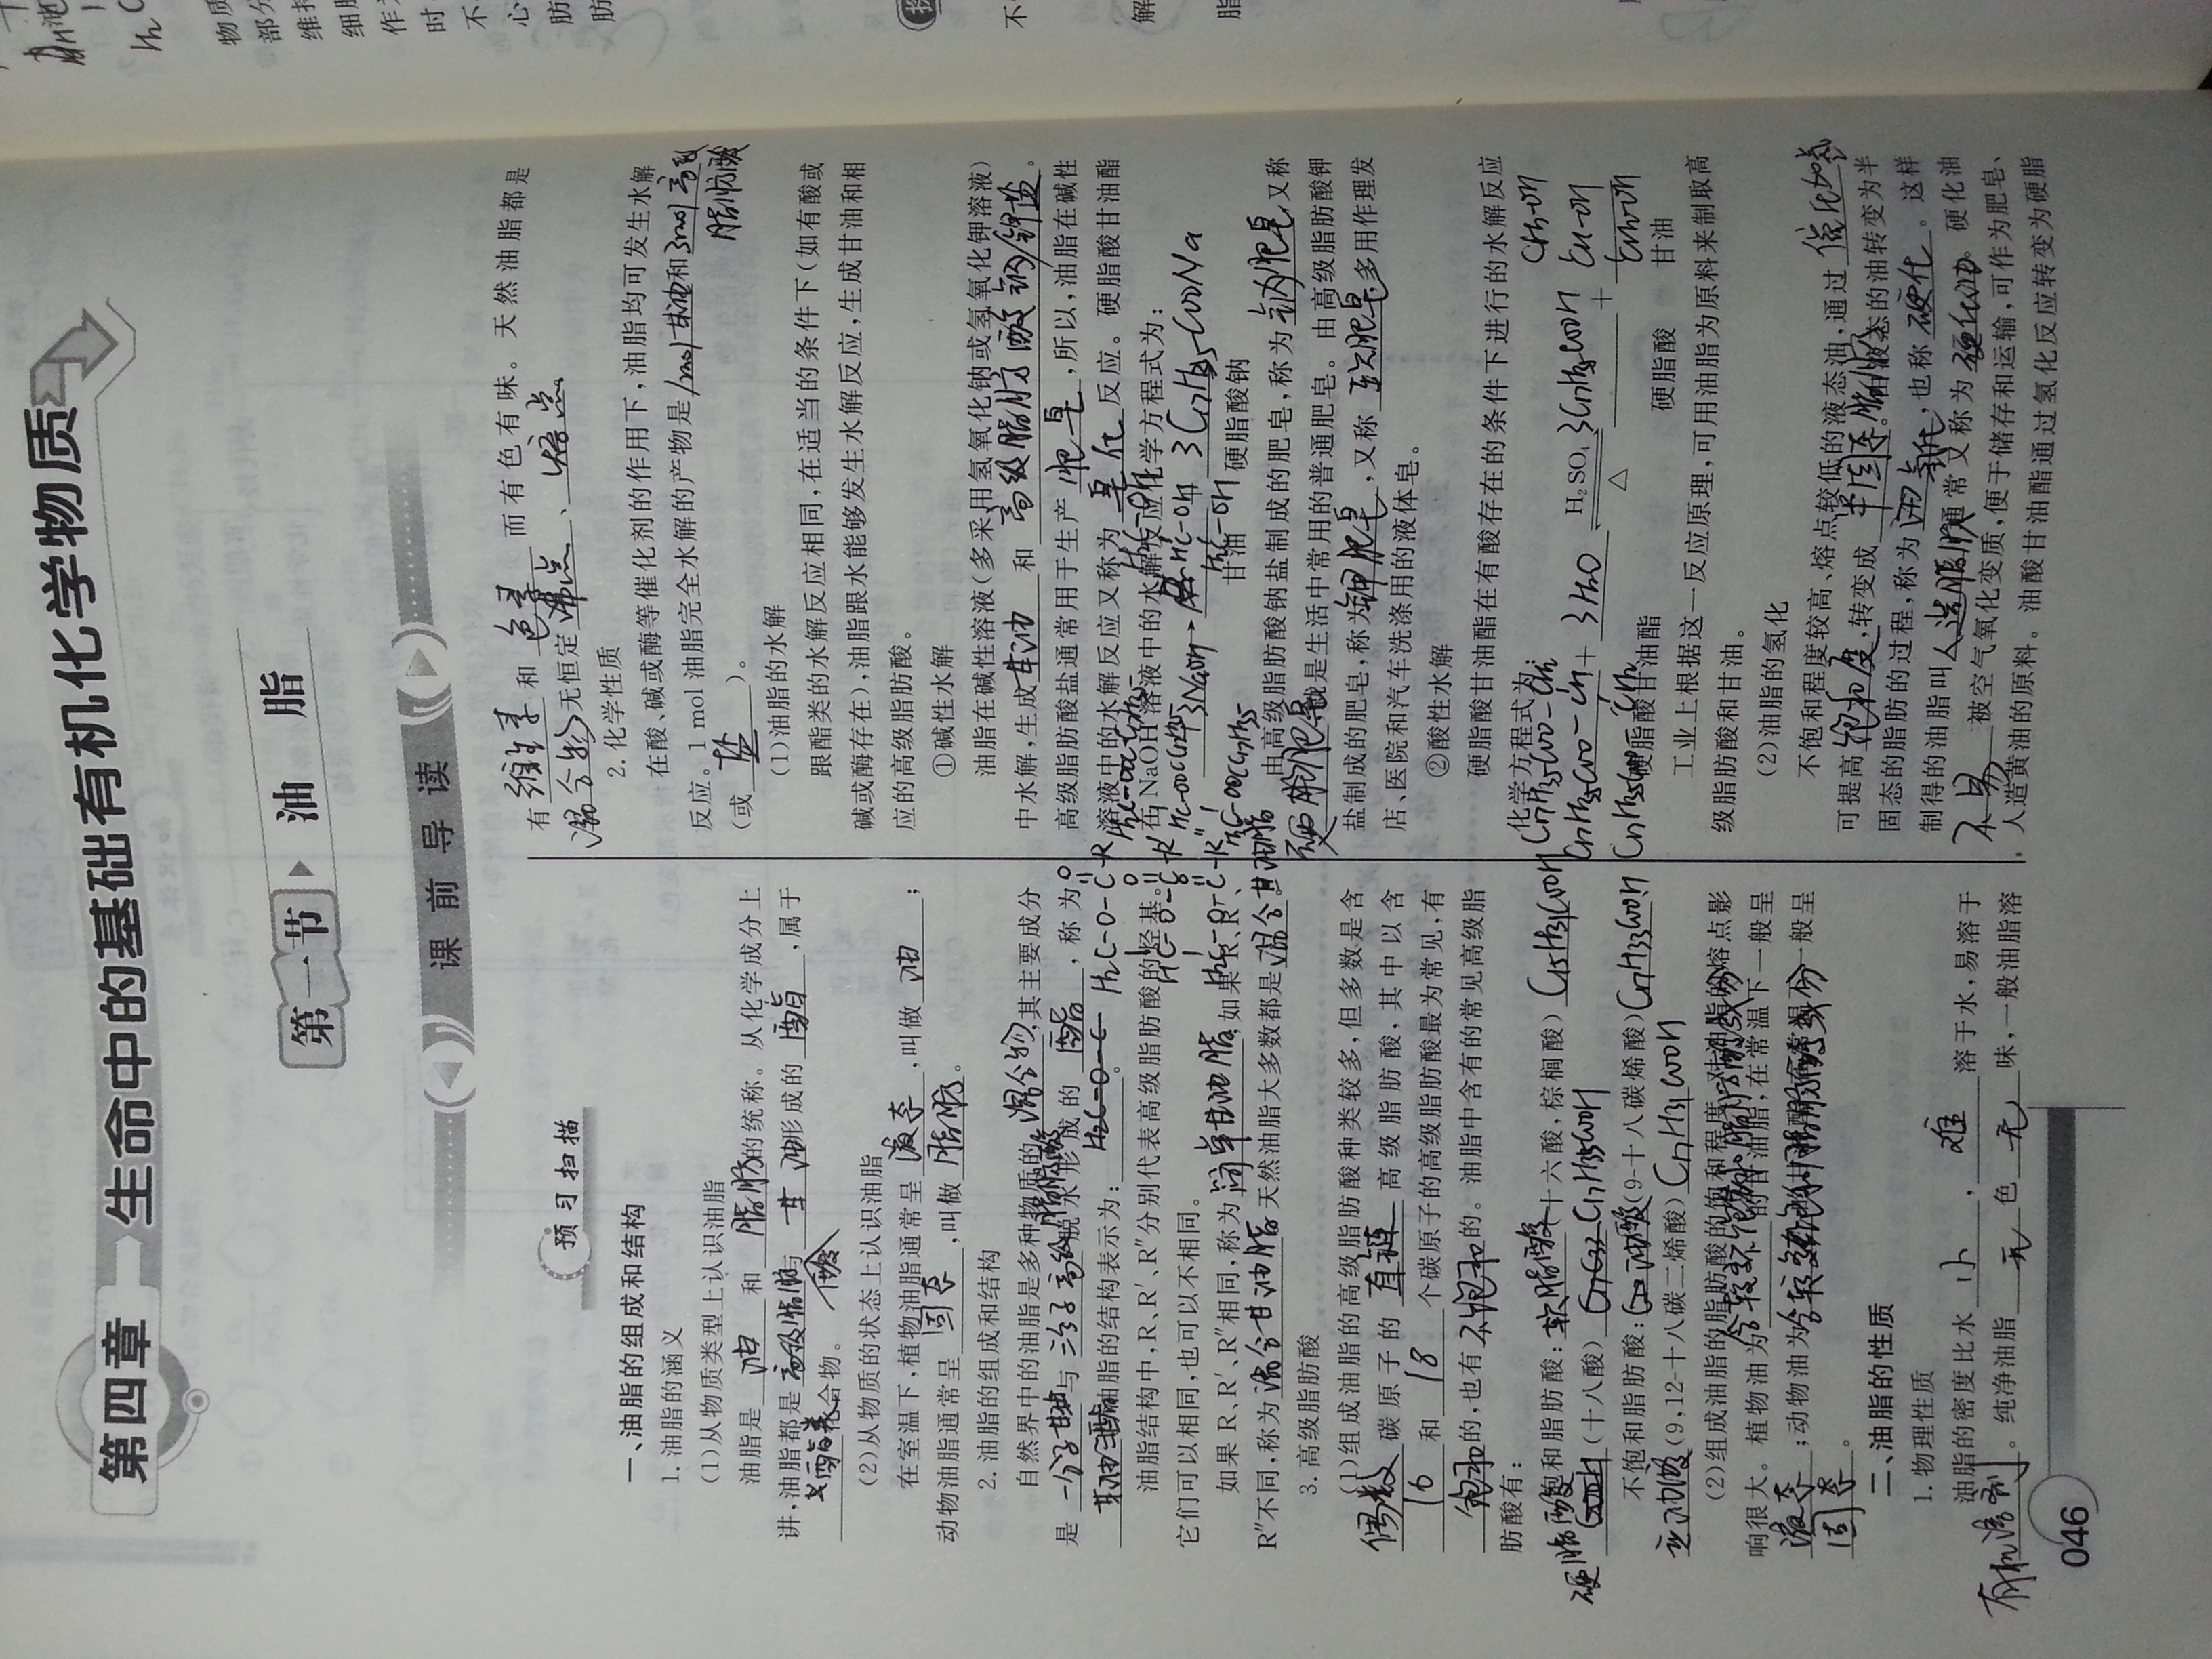 第四章 生命中的基础有机化学物质
第一节 油 脂
课前导读
预习扫描
一、油脂的组成和结构
1.油脂的涵义
(1)从物质类型上认识油脂
油脂是 油 和 脂肪的统称。从化学成分上
讲,油脂都是高级脂肪与 甘油形成的 酯 ,属于
酯类化合物。 酸
(2)从物质的状态上认识油脂
在室温下,植物油脂通常呈 液态 ,叫做 油 ;
动物油脂通常呈 固态 ,叫做 脂肪 。
2.油脂的组成和结构
自然界中的油脂是多种物质的 混合物,其主要成分
是 一分子甘油与 三分子高级脂肪酸脱水形成的 酯 ,称为
甘油三酯 油脂的结构表示为: 。
H₂C-O-C-R
油脂结构中,R、R′、R″分别代表高级脂肪酸的烃基。
HC-O-C-R′
它们可以相同,也可以不相同。
如果 R、R′、R″相同,称为 简单甘油脂,如果 R、R′、
H₂C-O-C-R″
R″不同,称为 混合甘油脂 天然油脂大多数都是 混合甘油脂
3.高级脂肪酸
(1)组成油脂的高级脂肪酸种类较多,但多数是含
偶数 碳原子的 直链 高级脂肪酸,其中以含
16 和 18 个碳原子的高级脂肪酸最为常见,有
饱和的,也有 不饱和的。油脂中含有的常见高级脂
肪酸有:
饱和脂肪酸: 软脂酸(十六酸,棕榈酸) C₁₅H₃₁COOH
硬脂酸 (十八酸) C₁₇H₃₅COOH
不饱和脂肪酸: 油酸(9-十八碳烯酸) C₁₇H₃₃COOH
亚油酸(9,12-十八碳二烯酸) C₁₇H₃₁COOH
(2)组成油脂的脂肪酸的饱和程度,对油脂的熔点影
响很大。植物油为 含较多不饱和脂肪酸成分 的甘油脂,在常温下一般呈
液态 ;动物油为 含较多饱和脂肪酸成分 一般呈
固态 。
二、油脂的性质
1.物理性质
油脂的密度比水 小 , 难 溶于水,易溶于
有机溶剂 。纯净油脂 无 色 无 味,一般油脂溶
046
有 维生素 和 色素 而有色有味。天然油脂都是
混合物,无恒定 沸点 、 熔点
2.化学性质
在酸、碱或酶等催化剂的作用下,油脂均可发生水解
反应。1 mol 油脂完全水解的产物是 1mol 甘油和 3mol 高级
脂肪酸
(或 盐 )。
(1)油脂的水解
跟酯类的水解反应相同,在适当的条件下(如有酸或
碱或酶存在),油脂跟水能够发生水解反应,生成甘油和相
应的高级脂肪酸。
①碱性水解
油脂在碱性溶液(多采用氢氧化钠或氢氧化钾溶液)
中水解,生成 甘油 和 高级脂肪酸钠/钾盐 。
高级脂肪酸盐通常用于生产 肥皂 ,所以,油脂在碱性
溶液中的水解反应又称为 皂化 反应。硬脂酸甘油酯
H₂C-OOCC₁₇H₃₅ H₂C-OH
在 NaOH 溶液中的水解反应化学方程式为:
HC-OOCC₁₇H₃₅ + 3NaOH → HC-OH + 3C₁₇H₃₅COONa
H₂C-OOCC₁₇H₃₅ H₂C-OH
甘油 硬脂酸钠
由高级脂肪酸钠盐制成的肥皂,称为 钠肥皂,又称
硬肥皂,就是生活中常用的普通肥皂。由高级脂肪酸钾
盐制成的肥皂,称为 钾肥皂 ,又称 软肥皂,多用作理发
店、医院和汽车洗涤用的液体皂。
②酸性水解
硬脂酸甘油酯在有酸存在的条件下进行的水解反应
化学方程式为:
C₁₇H₃₅COO-CH₂ CH₂-OH
C₁₇H₃₅COO-CH + 3H₂O H₂SO₄ △ 3C₁₇H₃₅COOH + CH-OH
C₁₇H₃₅COO-CH₂ CH₂-OH
硬脂酸甘油酯 硬脂酸 甘油
工业上根据这一反应原理,可用油脂为原料来制取高
级脂肪酸和甘油。
(2)油脂的氢化
不饱和程度较高、熔点较低的液态油,通过 催化加氢
可提高 饱和度,转变成 半固态脂肪。由液态的油转变为半
固态的脂肪的过程,称为 油氢化,也称 硬化 。这样
制得的油脂叫 人造脂肪,通常又称为 硬化油。硬化油
不易 被空气氧化变质,便于储存和运输,可作为肥皂、
人造黄油的原料。油酸甘油酯通过氢化反应转变为硬脂